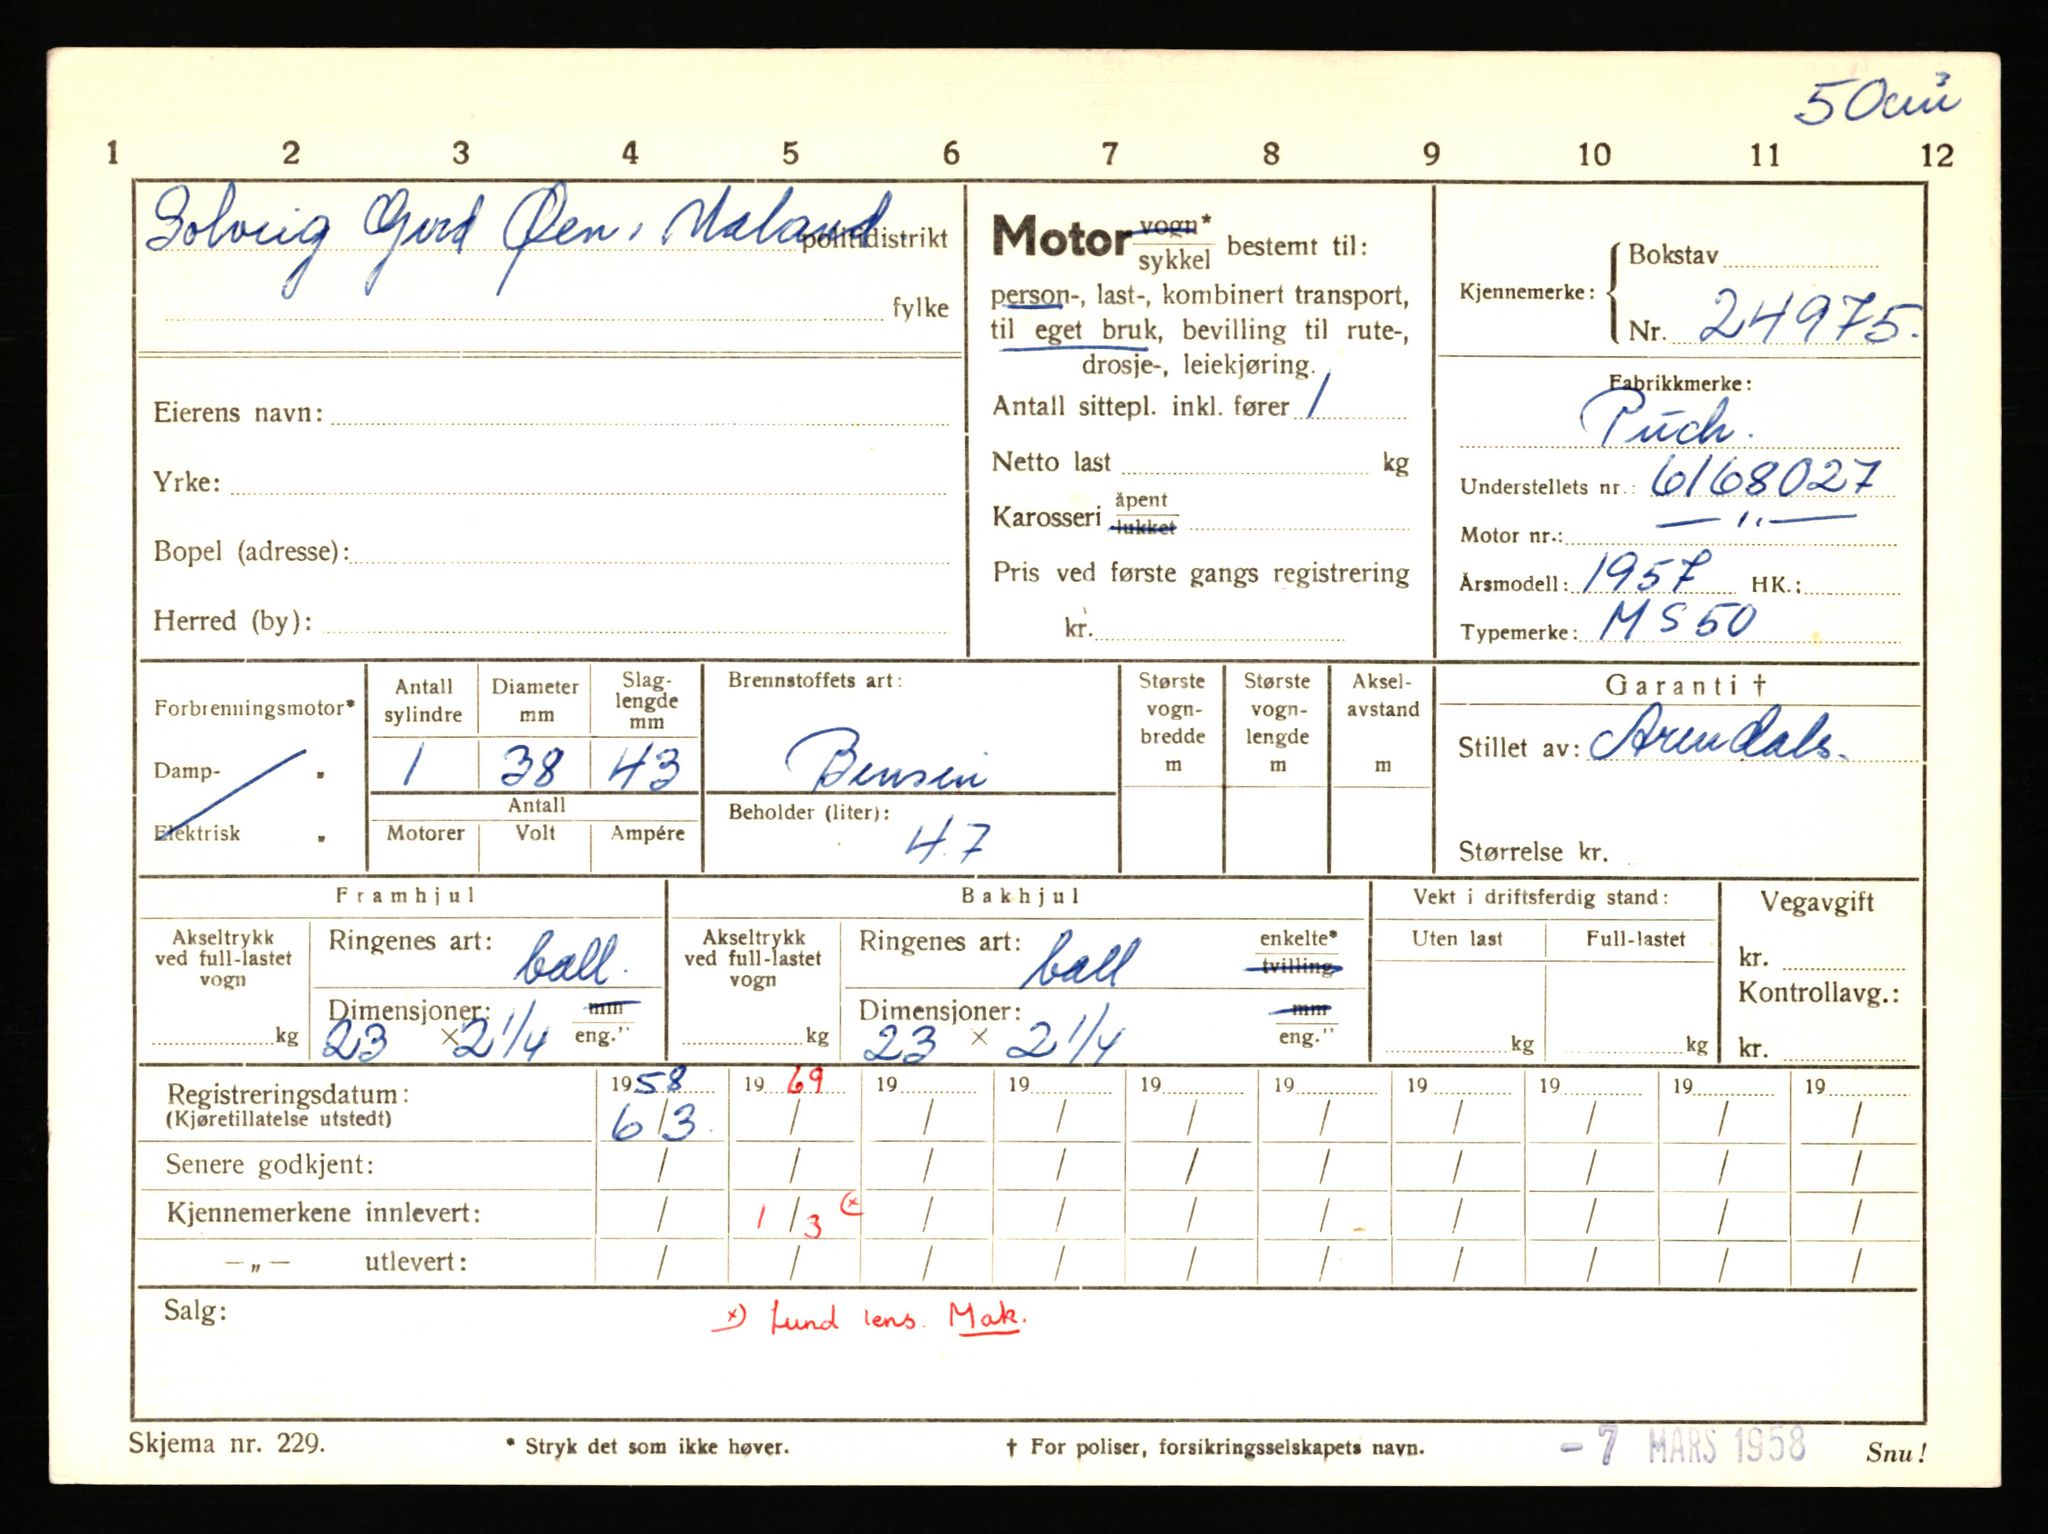 50 cm³
1 2 3 4 5 6 7 8 9 10 11 12
Solveig Gerd Øen, Maland politidistrikt
fylke
Eierens navn:
Yrke:
Bopel (adresse):
Herred (by):
Motor vogn* sykkel bestemt til:
person-, last-, kombinert transport,
til eget bruk, bevilling til rute-,
drosje-, leiekjøring.
Antall sittepl. inkl. fører 1
Netto last kg
Karosseri åpent lukket
Pris ved første gangs registrering
kr.
Kjennemerke: Bokstav
Nr. 24975.
Fabrikkmerke:
Puch.
Understellets nr.: 6168027
Motor nr.: — ,, —
Årsmodell: 1957 HK.:
Typemerke: MS50
Forbrenningsmotor*
Damp- "
Elektrisk "
Antall sylindre Diameter mm Slag-lengde mm
1 38 43
Antall
Motorer Volt Ampére
Brennstoffets art:
Bensin
Beholder (liter):
4.7
Største vogn-bredde m
Største vogn-lengde m
Aksel-avstand m
Garanti †
Stillet av: Arendals.
Størrelse kr.
Framhjul
Akseltrykk ved full-lastet vogn
kg
Ringenes art: ball.
Dimensjoner: mm
23 × 2 1/4 eng."
Bakhjul
Akseltrykk ved full-lastet vogn
kg
Ringenes art: ball enkelte* tvilling
Dimensjoner: mm
23 × 2 1/4 eng."
Vekt i driftsferdig stand:
Uten last Full-lastet
kg kg
Vegavgift
kr.
Kontrollavg.:
kr.
Registreringsdatum: 1958 1969 19 19 19 19 19 19 19 19
(Kjøretillatelse utstedt) 6/3. / / / / / / / / /
Senere godkjent: / / / / / / / / / /
Kjennemerkene innlevert: / 1/3 x) / / / / / / / /
—„— utlevert: / / / / / / / / / /
Salg:
x) Lund lens. Mak.
Skjema nr. 229. * Stryk det som ikke høver. † For poliser, forsikringsselskapets navn. -7 MARS 1958 Snu!